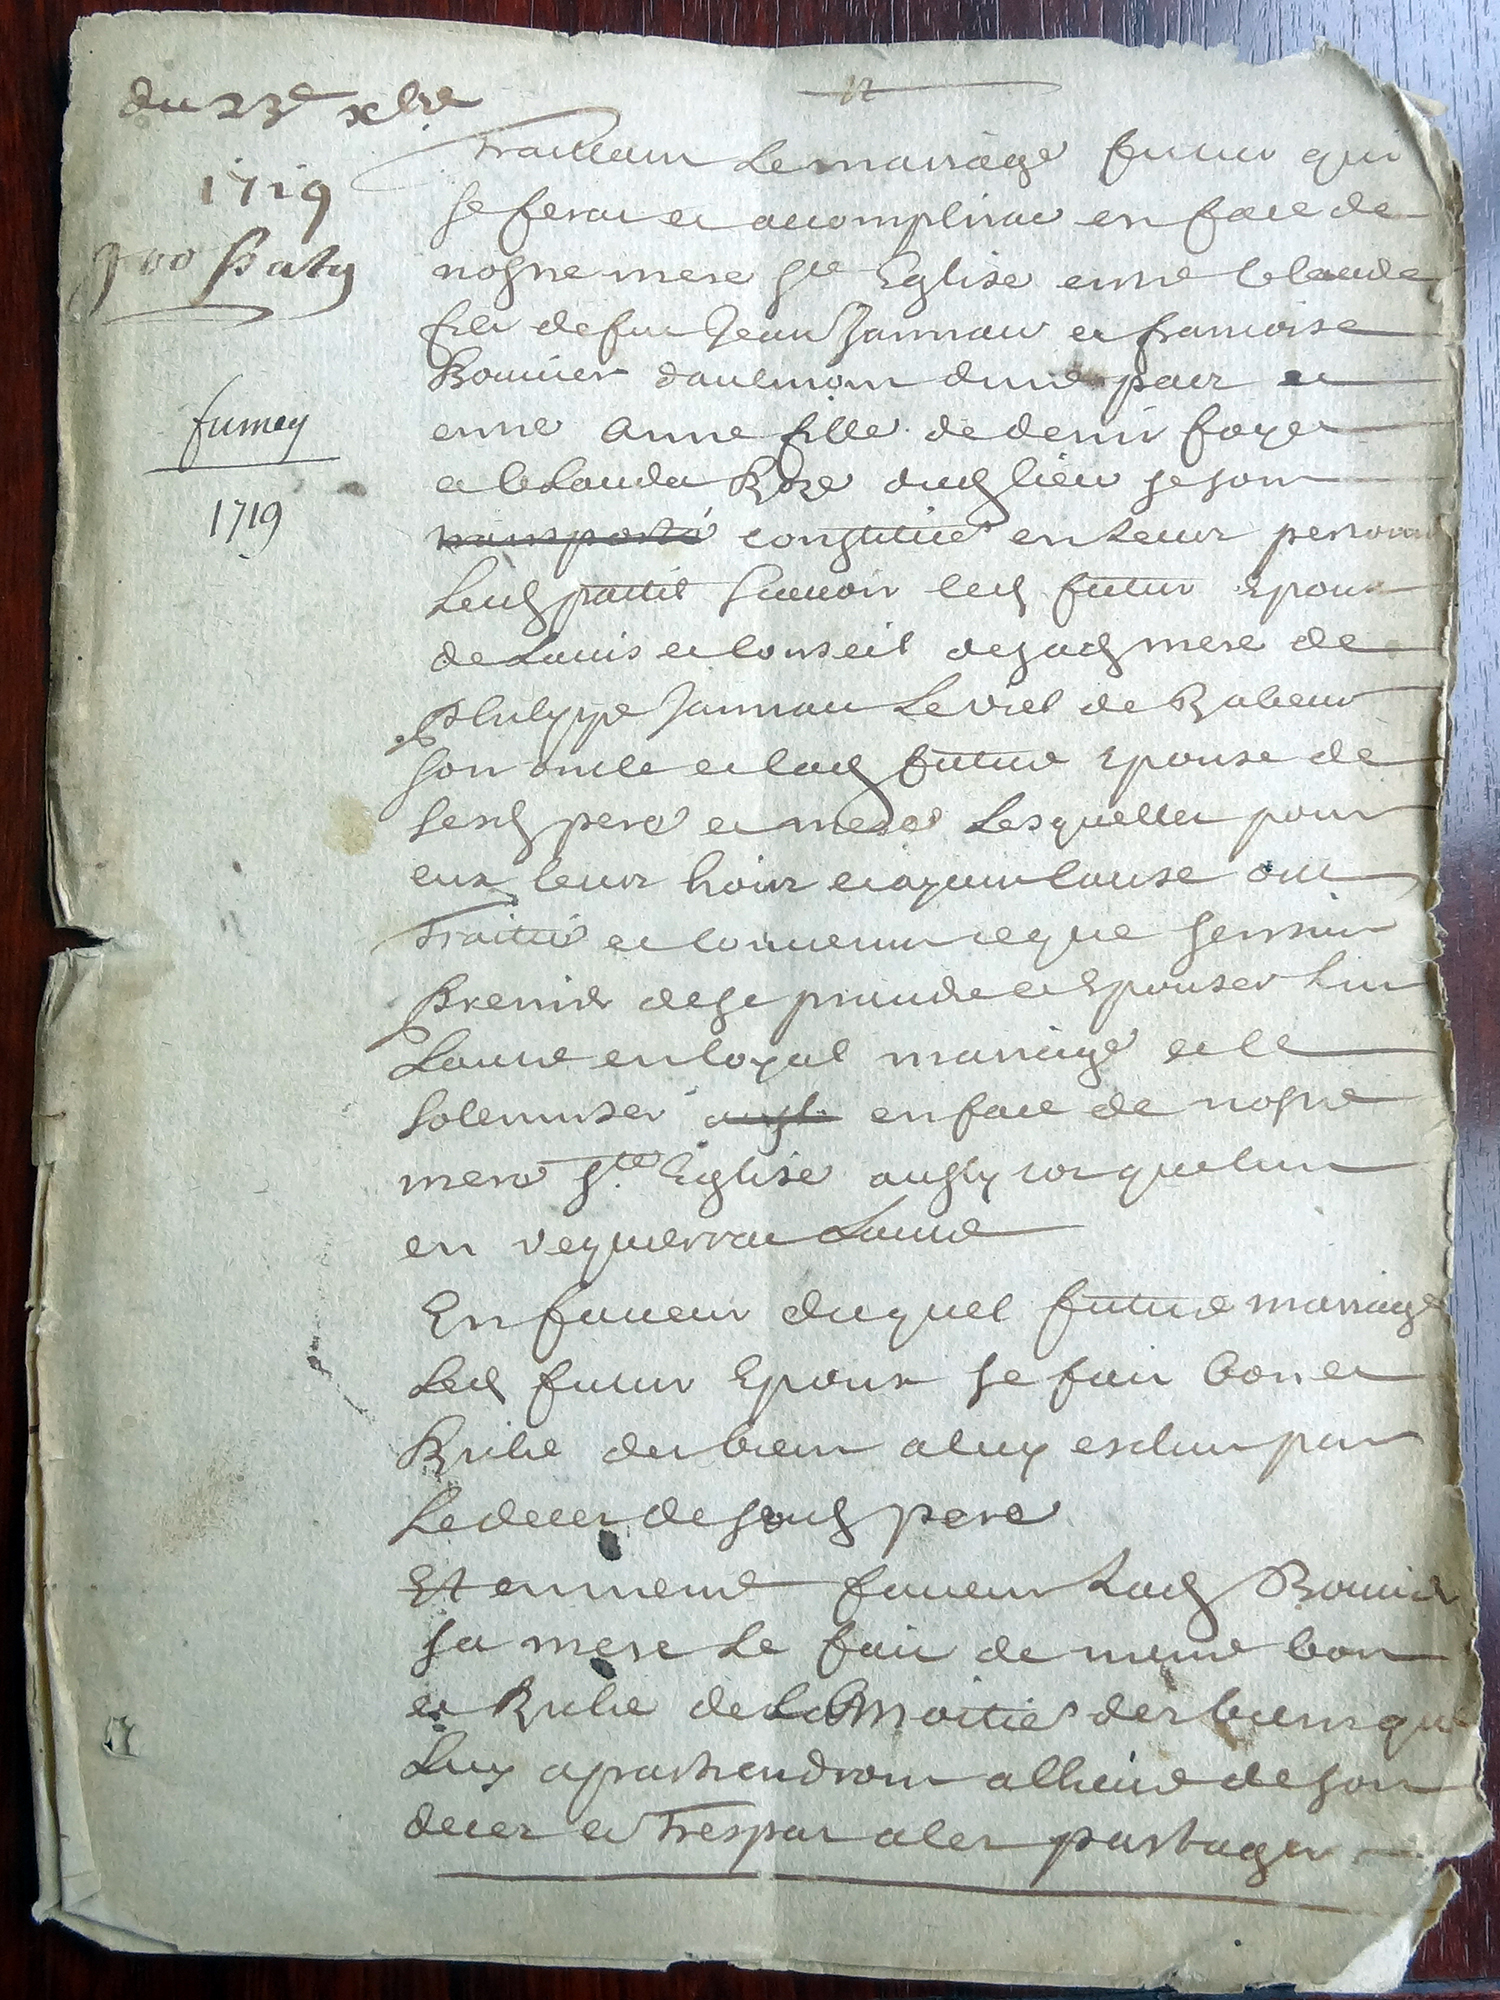 du 23e xbre
1719
fumey
1719
Traittant le mariage futur qui
se ferat et acomplirat en face de
nostre mere ste Eglise entre Claude
fils de fut Jean Jannau et francoise
Bouuier daulmont dune part et
entre Anne fille de denis foye
et Clauda Roze dud lieu se sont
transporté constitués en leur personn
Lesd partis scauoir led futur Epoux
de Lauis et Conseil de sad mere de
Philippe Jannau Le viel de
son oncle et lad future Epouse de
sesd pere et mere Lesquelles pour
eux leur hoirs et ayant cause ont
Traittés et conuenut ce que sensuit
Premier de se prandre et Epouser lun
Lautre en loyal mariage et le
solemniser en face de nostre
mere ste Eglise ausy tot que lun
en requerrat Lautre
En faueur duquel future mariage
Led futur Epoux se fait bon et
Riche des biens a luy eschus par
Le deces de sond pere
Et en meme faueur Lad Bouuier
sa mere Le fait de meme bon
et Riche de La Moitié des biens que
Luy apartiendront a lheure de son
deces et Trespas a les partager